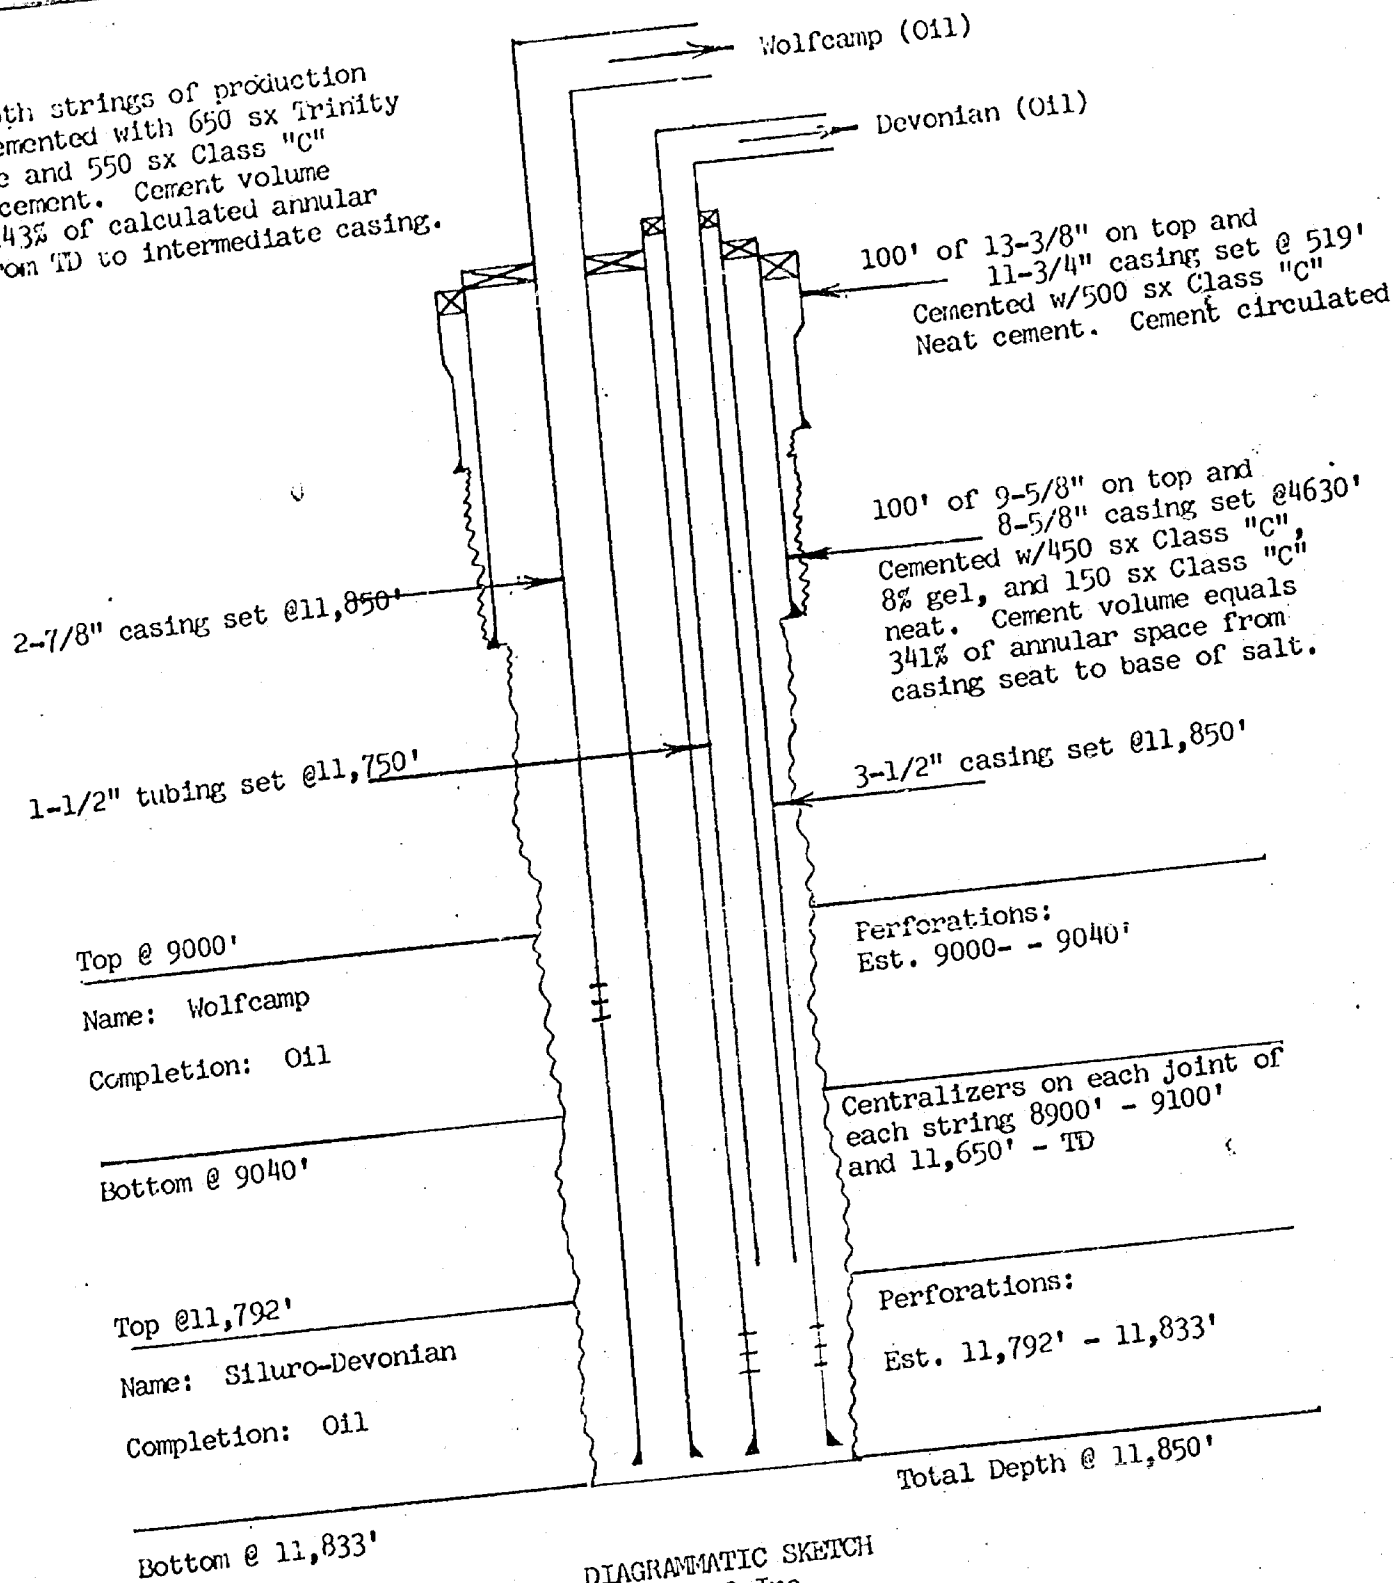 Wolfcamp (Oil)
Devonian (Oil)
strings of production
with 650 sx Trinity
and 550 sx Class "C"
cement. Cement volume
43% of calculated annular
TD to intermediate casing.
100' of 13-3/8" on top and
11-3/4" casing set @ 519'
Cemented w/500 sx Class "C"
Neat cement. Cement circulated
100' of 9-5/8" on top and
8-5/8" casing set @4630'
Cemented w/450 sx Class "C",
8% gel, and 150 sx Class "C"
neat. Cement volume equals
341% of annular space from
casing seat to base of salt.
2-7/8" casing set @11,850'
1-1/2" tubing set @11,750'
3-1/2" casing set @11,850'
Top @ 9000'
Name: Wolfcamp
Completion: Oil
Bottom @ 9040'
Perforations:
Est. 9000- - 9040'
Centralizers on each joint of
each string 8900' - 9100'
and 11,650' - TD
Top @11,792'
Name: Siluro-Devonian
Completion: Oil
Bottom @ 11,833'
Perforations:
Est. 11,792' - 11,833'
Total Depth @ 11,850'
DIAGRAMMATIC SKETCH